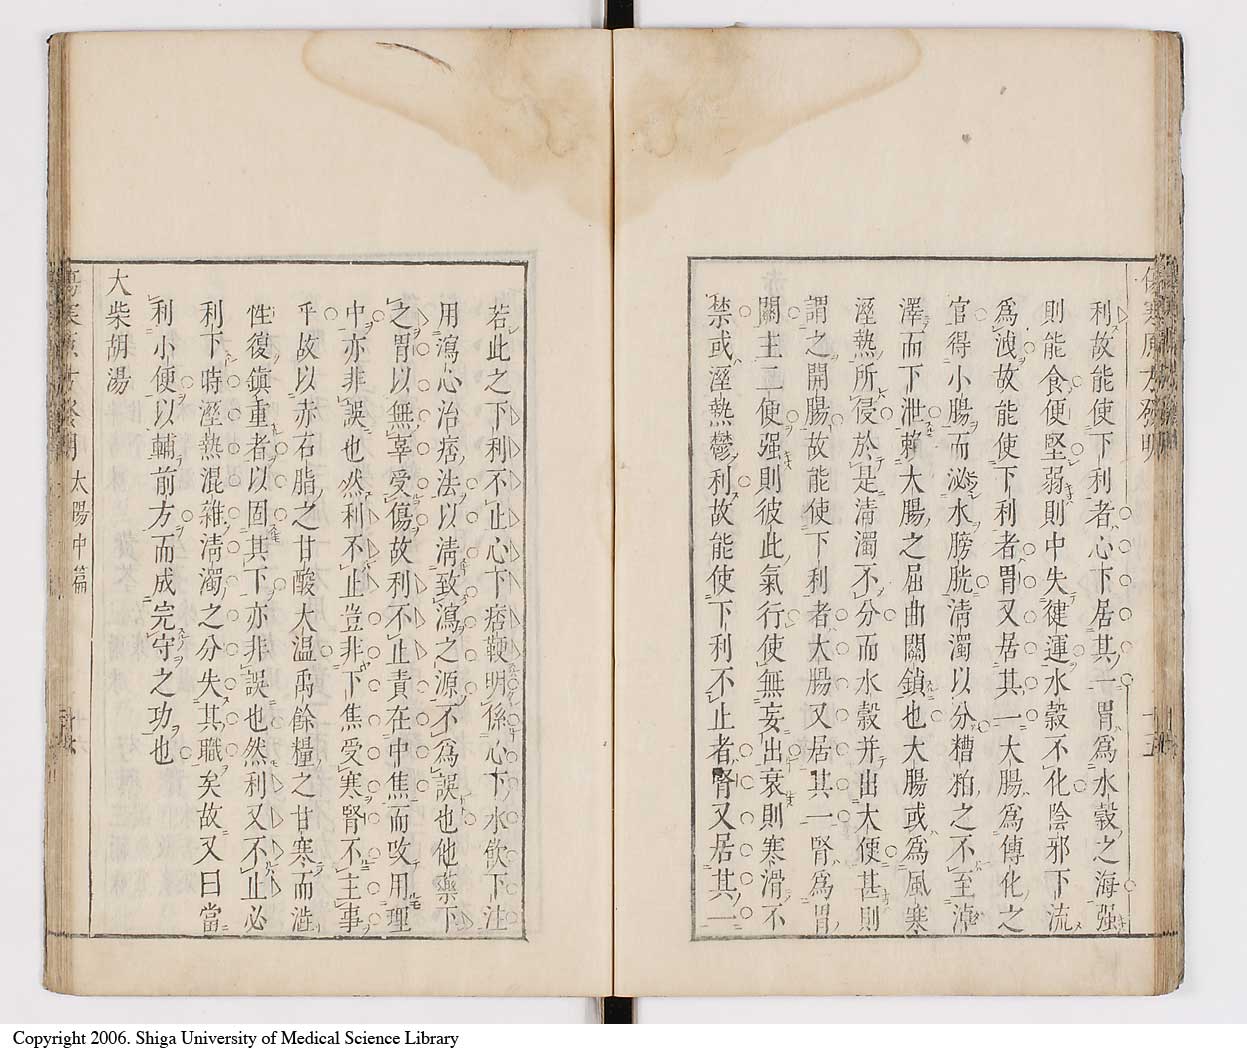 傷寒原方發明
十五
利故能使下利者心下居其一胃爲水穀之海强
則能食便堅弱則中失健運水穀不化陰邪下流
爲洩故能使下利者胃又居其一大腸爲傳化之
官得小腸而泌水膀胱淸濁以分糟粕之不至淖
澤而下泄賴大腸之屈曲關鎖也大腸或爲風寒
溼熱所侵於是淸濁不分而水穀并出大便甚則
謂之開腸故能使下利者大腸又居其一腎爲胃
關主二便强則彼此氣行使無妄出衰則寒滑不
禁或溼熱鬱利故能使下利不止者腎又居其一
若此之下利不止心下痞鞕明係心下水飮下注
用瀉心治痞法以淸致瀉之源不爲誤也他藥下
之胃以無辜受傷故利不止責在中焦而攻用理
中亦非誤也然利不止豈非下焦受寒腎不主事
乎故以赤石脂之甘酸大温禹餘糧之甘寒而澁
性復鎭重者以固其下亦非誤也然利又不止必
利下時溼熱混雜淸濁之分失其職矣故又曰當
利小便以輔前方而成完守之功也
大柴胡湯
太陽中篇
Copyright 2006. Shiga University of Medical Science Library